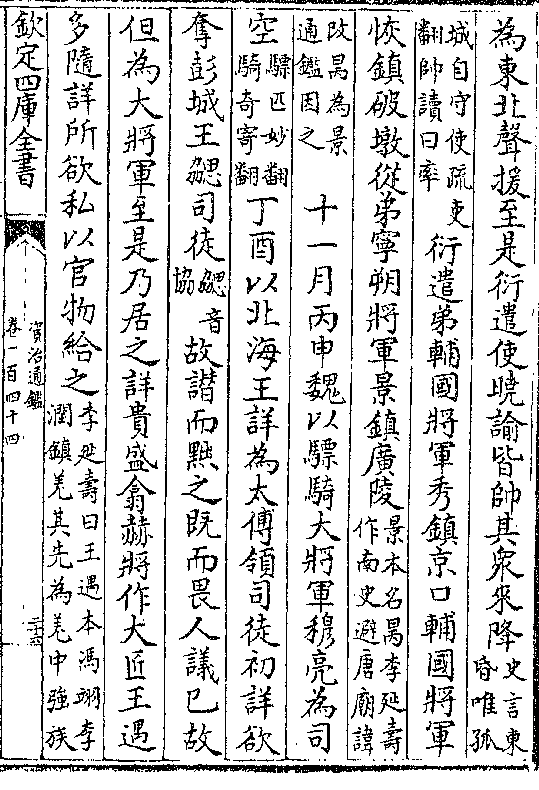 為東北聲援至是衍遣使曉諭皆帥其衆来降史言東昏唯孤
城自守使疏吏翻帥讀曰率衍遣弟輔國將軍秀鎮京口輔國將軍
恢鎮破墩從弟寧朔將軍景鎮廣陵景本名昺李延壽作南史避唐廟諱
改昺為景通鑑因之十一月丙申魏以驃騎大將軍穆亮為司
空驃匹妙翻騎奇寄翻丁酉以北海王詳為太傅領司徒初詳欲
奪彭城王勰司徒勰音協故譖而黜之既而畏人議已故
但為大將軍至是乃居之詳貴盛翕赫將作大匠王遇
多隨詳所欲私以官物給之李延壽曰王遇本馮翊李潤鎮羌其先為羌中強族
欽定四庫全書
資治通鑑
卷一百四十四